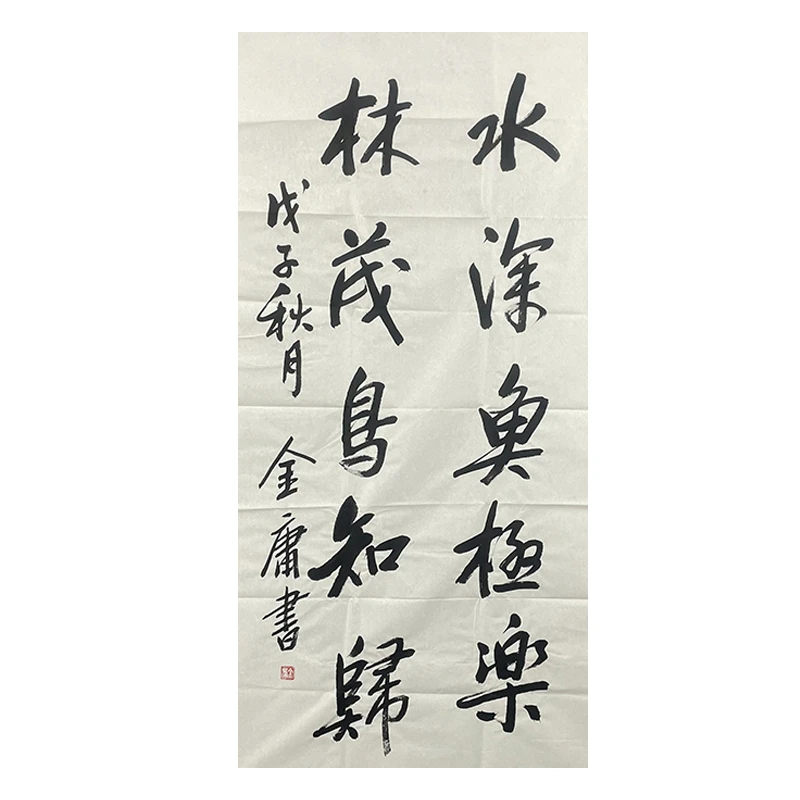 水深魚極樂
林茂鳥知歸
戊子秋月 金庸書